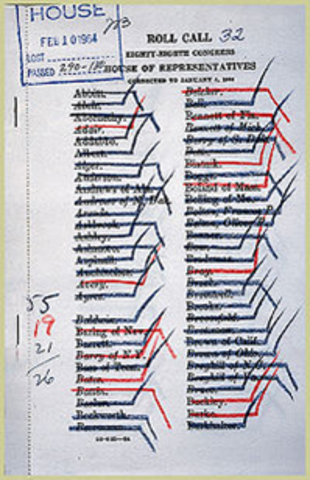 HOUSE
FEB 10 1964
LOST
PASSED 290-130
ROLL CALL 32
EIGHTY-EIGHTH CONGRESS
HOUSE OF REPRESENTATIVES
CORRECTED TO JANUARY
Abbitt
Abele
Abernethy
Adair
Addabbo
Albert
Alger
Anderson
Andrews of Ala.
Andrews of N. Dak.
Arends
Ashbrook
Ashley
Ashmore
Aspinall
Auchincloss
Avery
Ayres
Baldwin
Baring of Nev.
Barrett
Barry of N.Y.
Bass of Tenn.
Bates
Battin
Becker
Beckworth
Beermann
Belcher
Bell
Bennett of Fla.
Bennett of Mich.
Berry of S. Dak.
Blatnik
Boggs
Boland of Mass.
Bolling of Mo.
Bolton, Frances P.
Bolton, Oliver P.
Bow
Brademas
Bray
Brock
Bromwell
Brooks
Broomfield
Brown of Calif.
Brown of Ohio
Broyhill of N.C.
Broyhill of Va.
Bruce
Buckley
Burke
Burkhalter
55
19
21
26